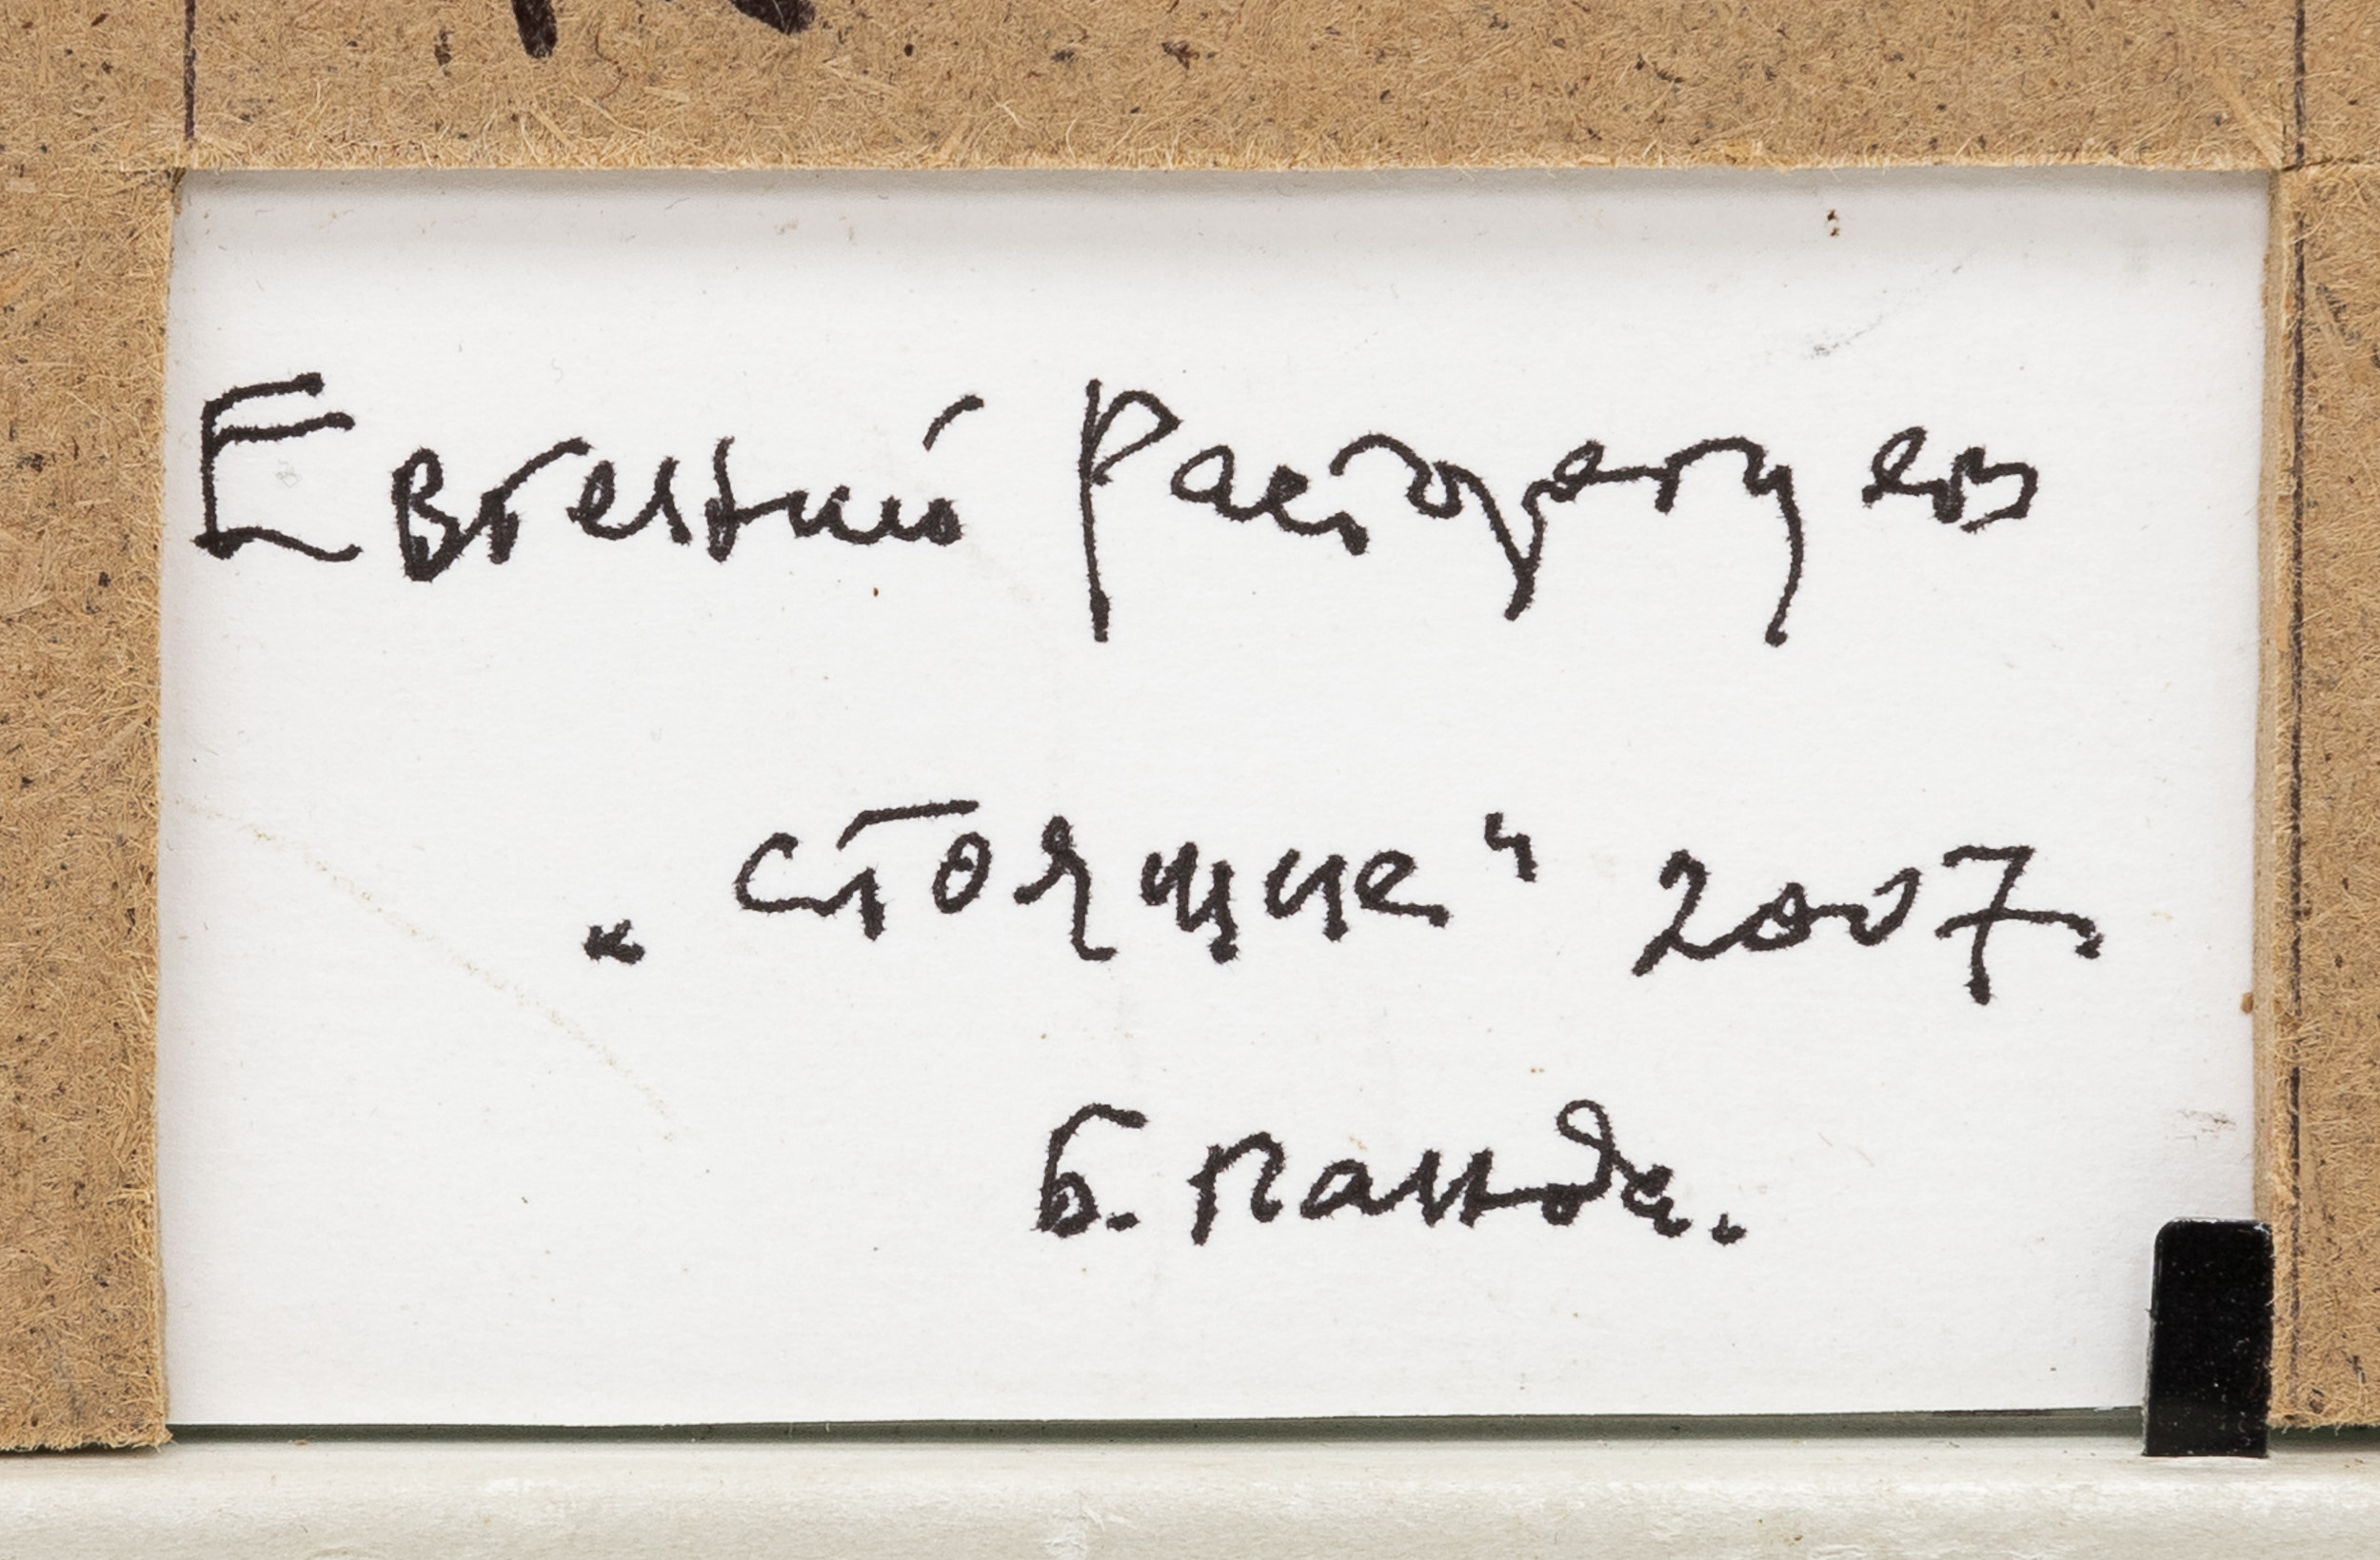 Евгений Расторгуев
„стоящие“ 2007.
Б. Панда.